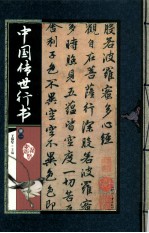 中国传世行书
般若波羅蜜多心經
觀自在菩薩行深般若
時照見五蘊皆空度一切苦
舍利子色不異空空不異色色即